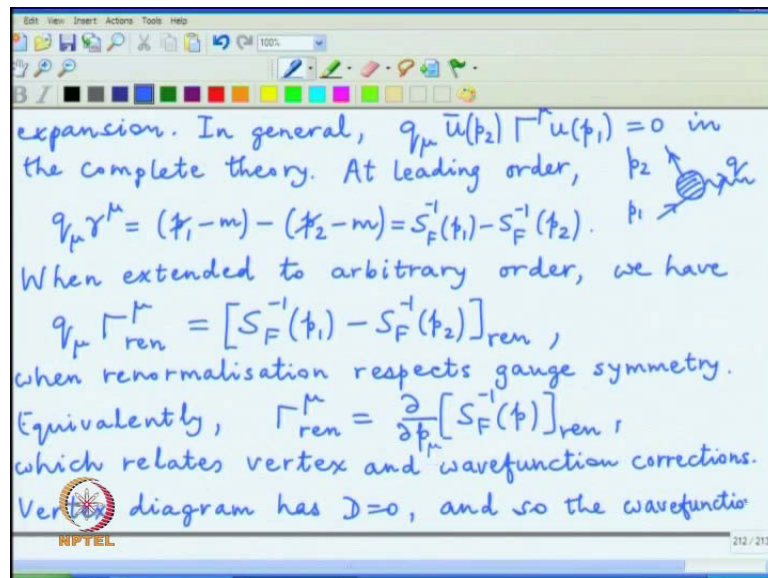 Edit View Insert Actions Tools Help
100%
B I
expansion. In general, q_μ ū(p₂) Γ^μ u(p₁) = 0 in
the complete theory. At leading order, p₂ q
q_μ γ^μ = (p̸₁-m) - (p̸₂-m) = S_F^{-1}(p₁) - S_F^{-1}(p₂). p₁
When extended to arbitrary order, we have
q_μ Γ^μ_ren = [S_F^{-1}(p₁) - S_F^{-1}(p₂)]_ren ,
when renormalisation respects gauge symmetry.
Equivalently, Γ^μ_ren = ∂/∂p_μ [S_F^{-1}(p)]_ren ,
which relates vertex and wavefunction corrections.
Vertex diagram has D=0, and so the wavefunctio
NPTEL
212 / 213